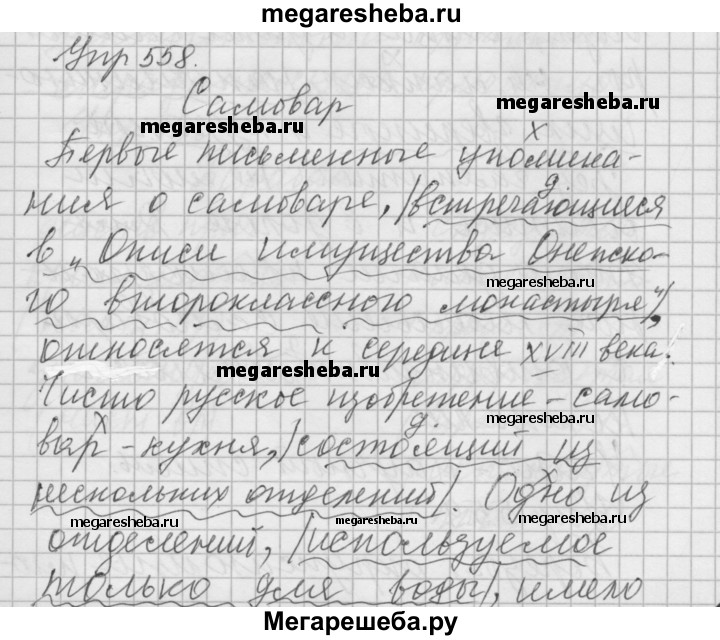 megaresheba.ru
Упр 558.
Самовар
megaresheba.ru
megaresheba.ru
х
Первые письменные упомина-
д
ния о самоваре, |встречающиеся
в „Описи имущества Онежско-
megaresheba.ru
го второклассного монастыря"|,
относятся к середине XVIII века.
megaresheba.ru
Чисто русское изобретение - само-
х д megaresheba.ru
вар - кухня, |состоящий из
х
нескольких отделений|. Одно из
megaresheba.ru megaresheba.ru megaresheba.ru
отделений, |используемое
только для воды|, имело
Мегарешеба.ру